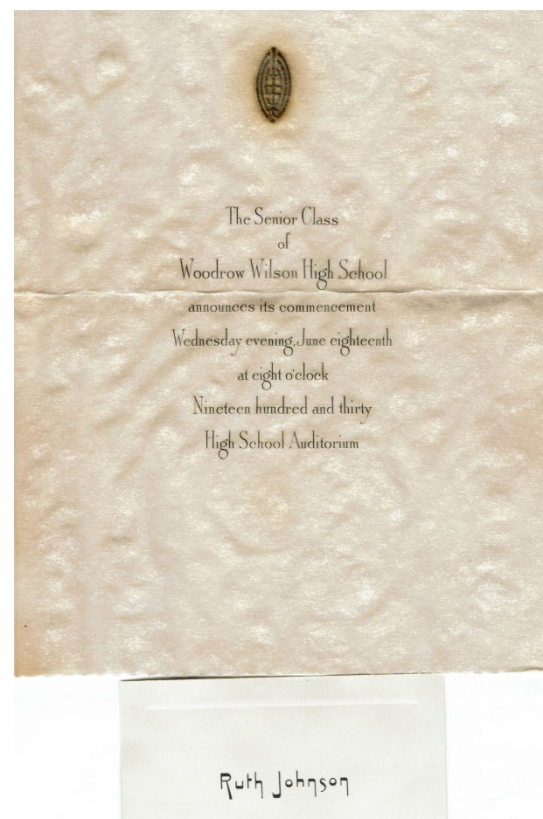 The Senior Class
of
Woodrow Wilson High School
announces its commencement
Wednesday evening, June eighteenth
at eight o'clock
Nineteen hundred and thirty
High School Auditorium
Ruth Johnson